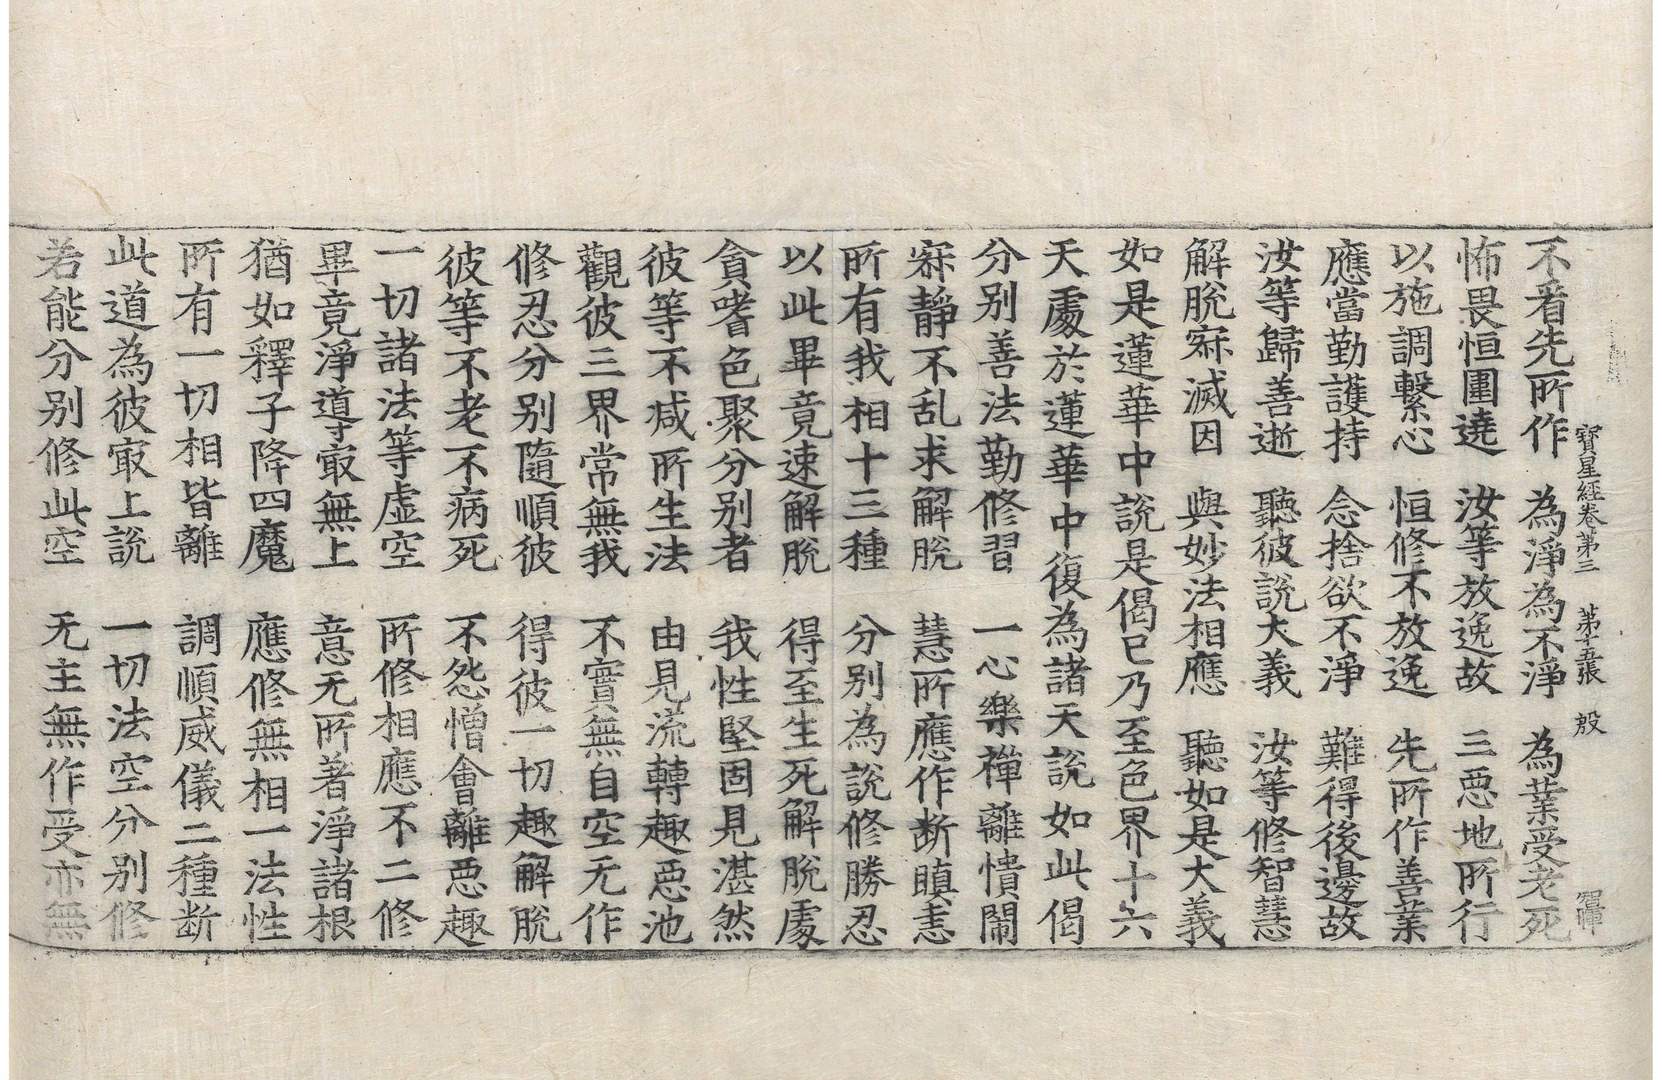 寶星經卷第三 第十五張 殷
不看先所作 為淨為不淨 為業受老死
怖畏恒圍遶 汝等放逸故 三惡地所行
以施調繫心 恒修不放逸 先所作善業
應當勤護持 念捨欲不淨 難得後邊故
汝等歸善逝 聽彼說大義 汝等修智慧
解脫寂滅因 與妙法相應 聽如是大義
如是蓮華中說是偈已乃至色界十六
天處於蓮華中復為諸天說如此偈
分別善法勤修習 一心樂禪離憒閙
寂靜不乱求解脫 慧所應作斷瞋恚
所有我相十三種 分別為說修勝忍
以此畢竟速解脫 得至生死解脫處
貪嗜色聚分別者 我性堅固見湛然
彼等不減所生法 由見流轉趣惡池
觀彼三界常無我 不實無自空无作
修忍分別隨順彼 得彼一切趣解脫
彼等不老不病死 不怨憎會離惡趣
一切諸法等虛空 所修相應不二修
畢竟淨導寂無上 意无所著淨諸根
猶如釋子降四魔 應修無相一法性
所有一切相皆離 調順威儀二種斷
此道為彼寂上說 一切法空分別修
若能分別修此空 无主無作受亦無